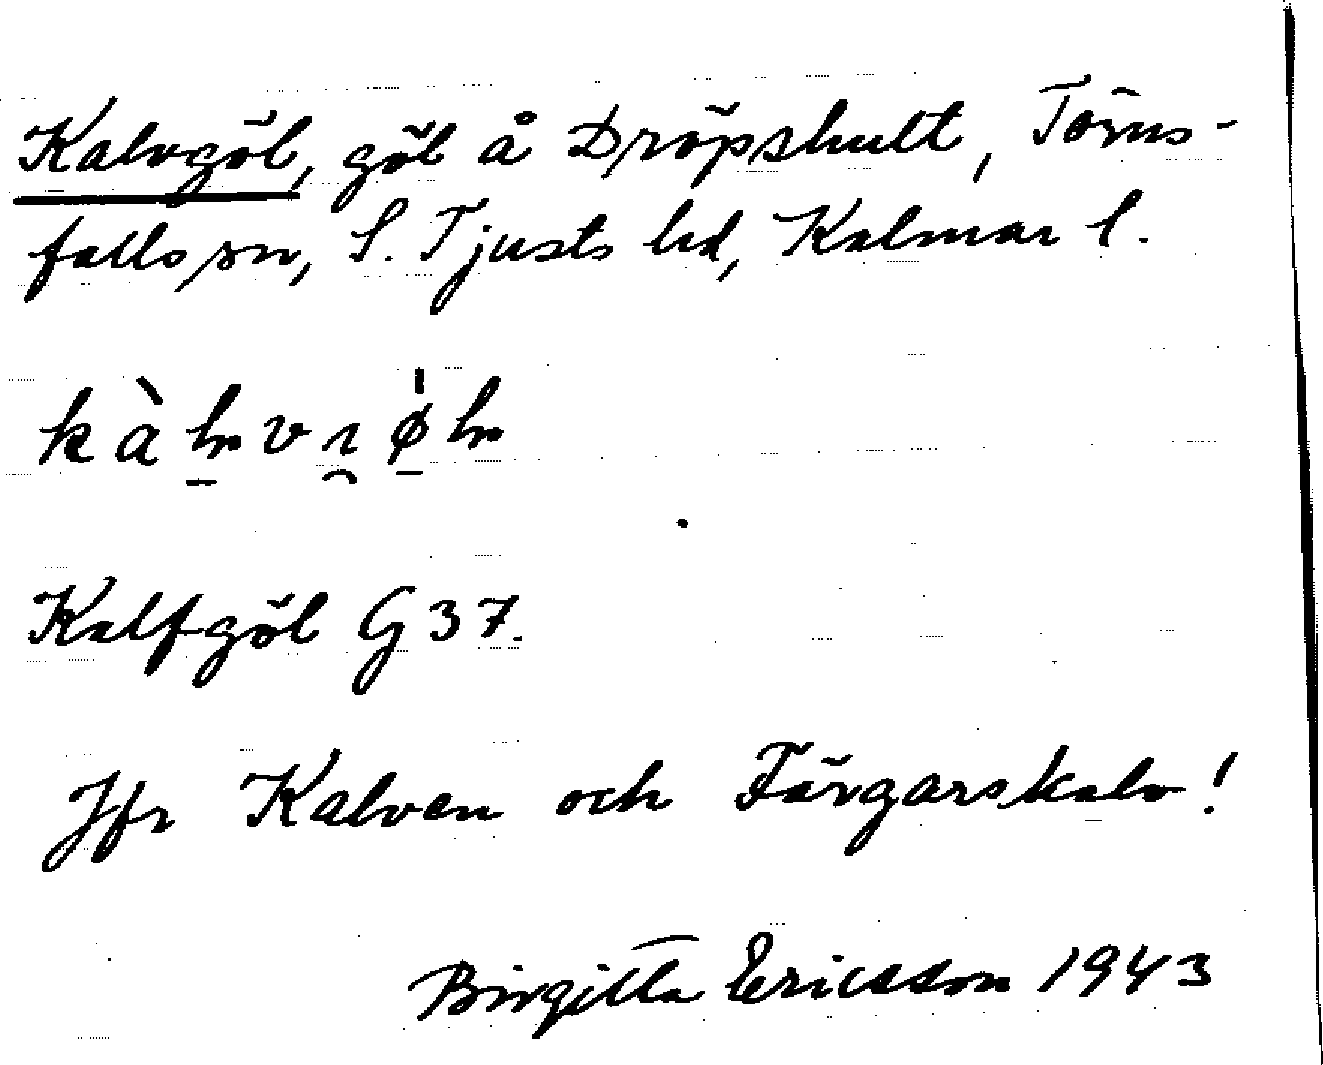 Kalvgöl, göl å Dröpshult, Törns-
falls sn, S. Tjusts hd, Kalmar l.
Kalfgöl G 37.
Jfr Kalven och Färgarskalv!
Birgitta Ericsson 1943